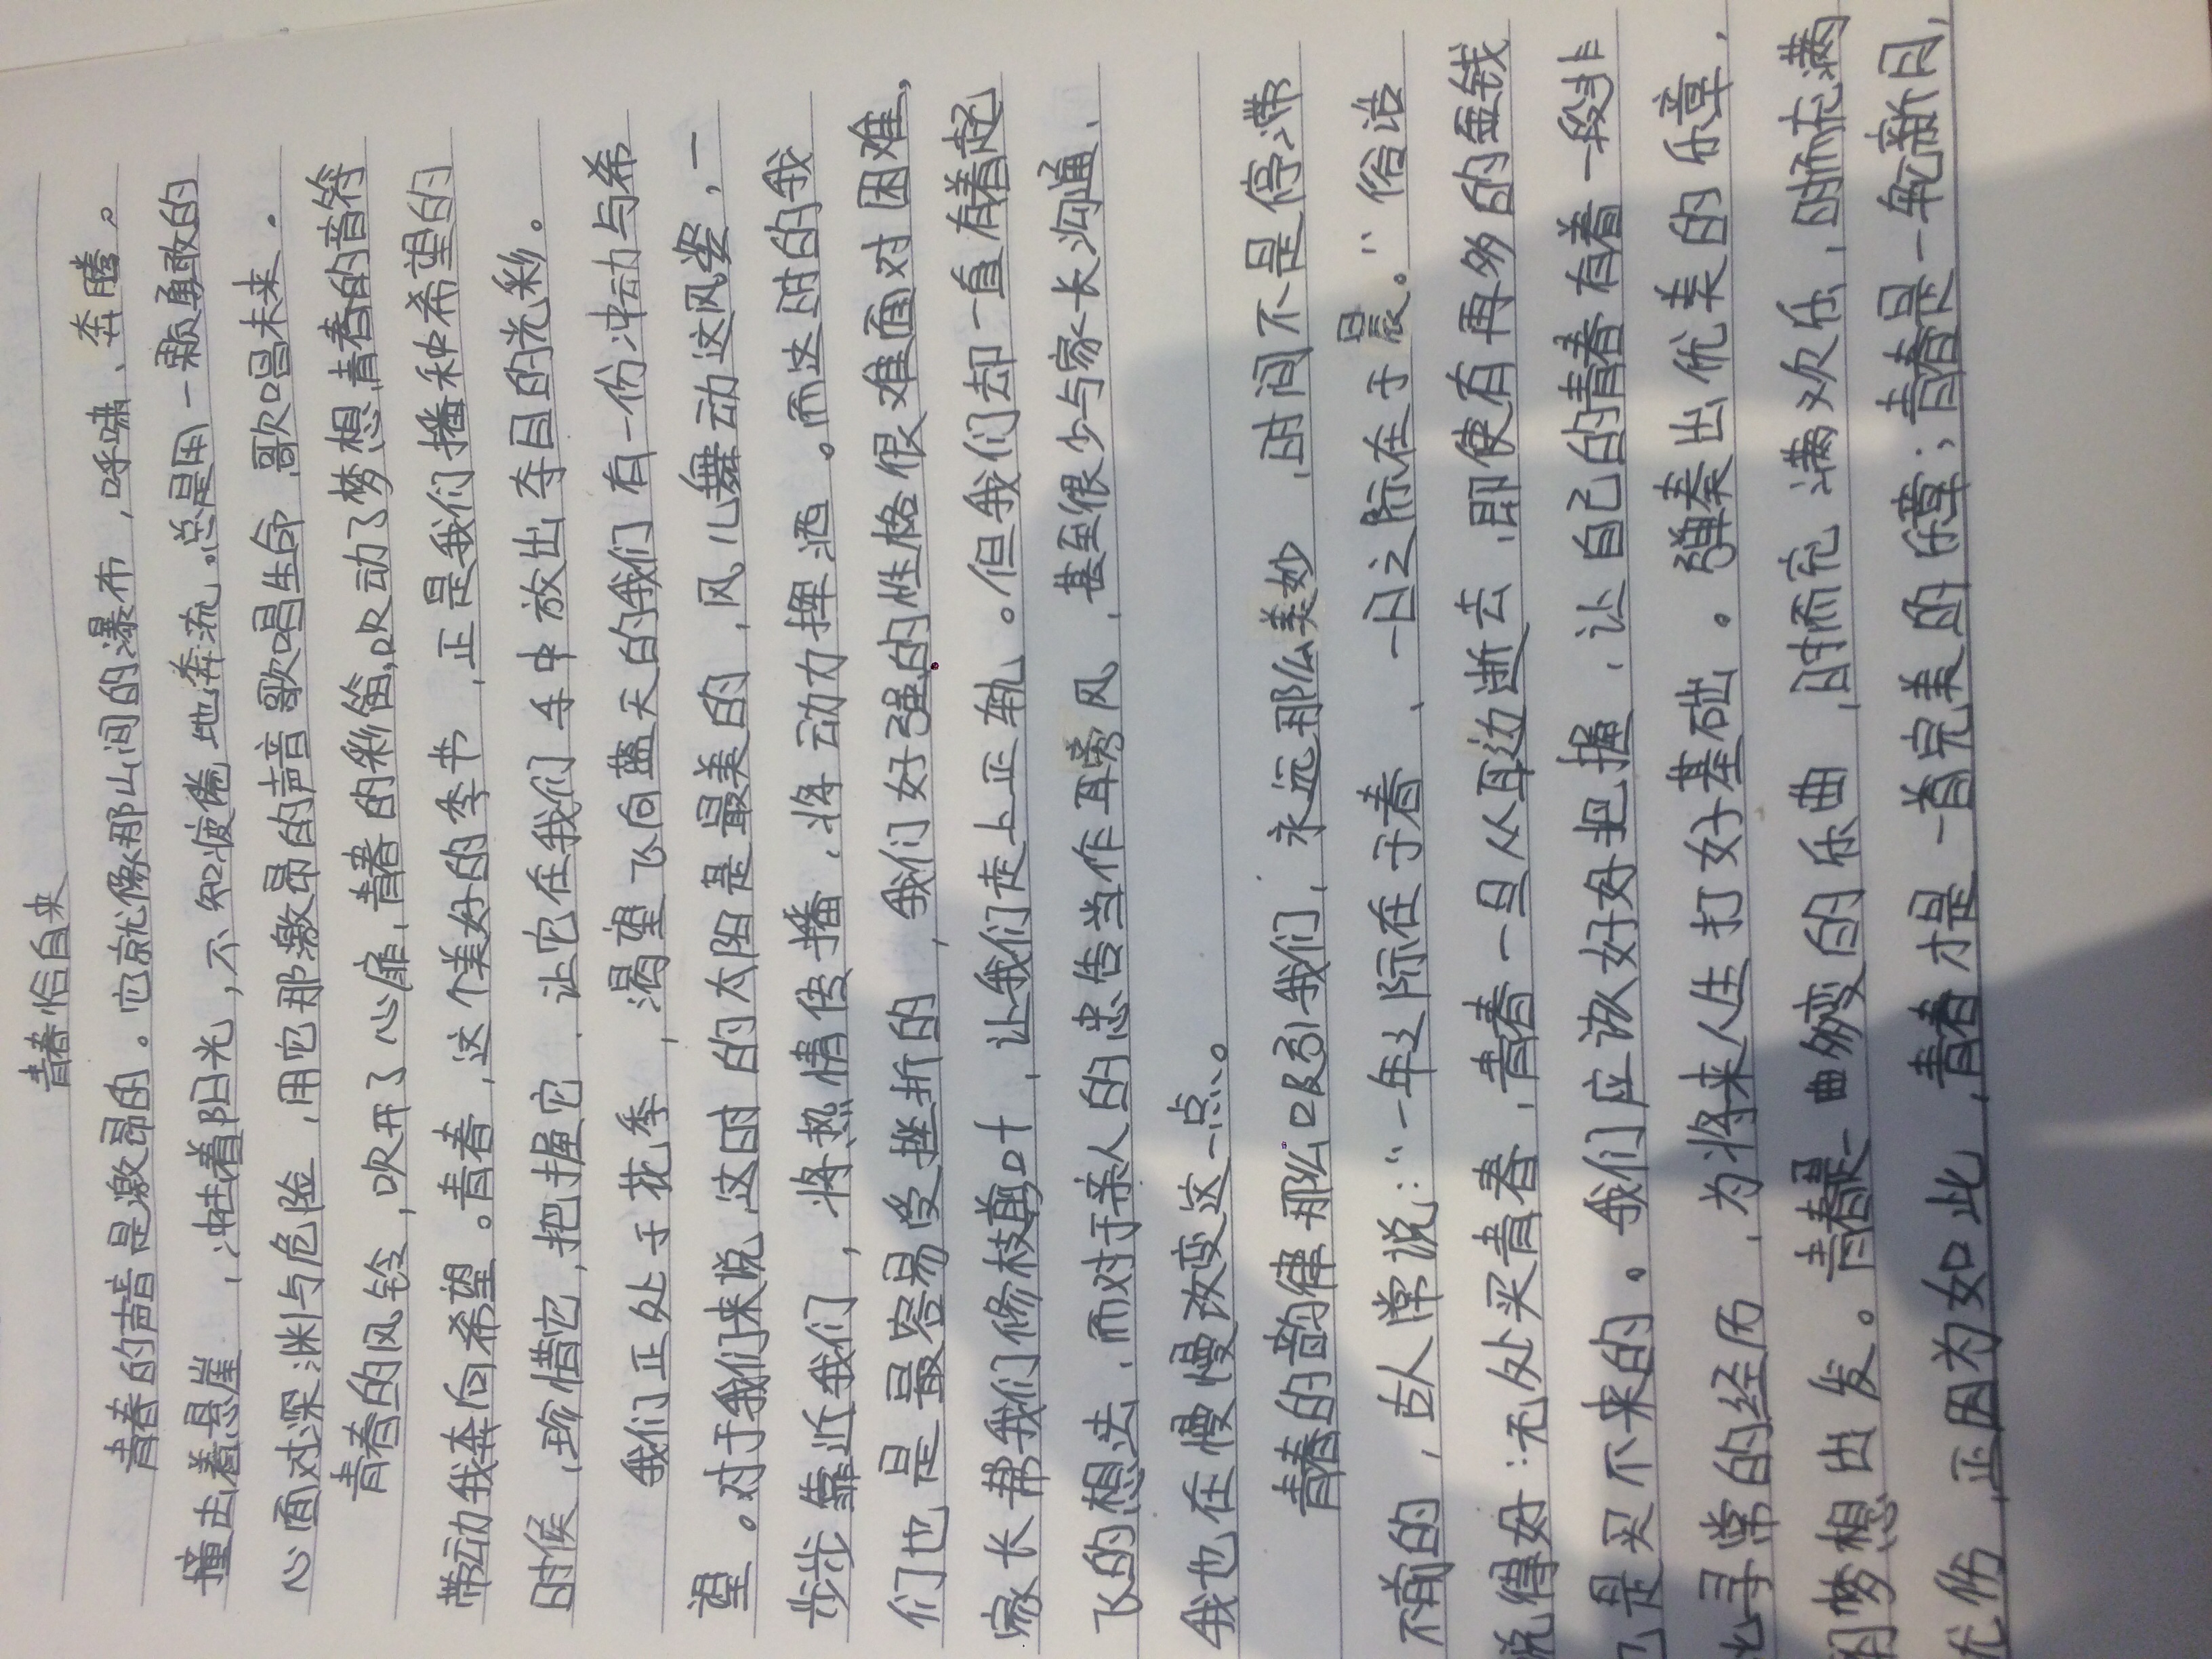 青春恰自来
青春的声音是激昂的。它就像那山间的瀑布，呼啸、奔腾。
撞击着悬崖，冲哇着阳光，不知疲倦地奔流。总是用一颗勇敢的
心面对深渊与危险，用它那激昂的声音歌唱生命，歌唱未来。
青春的风铃，吹开了心扉，青春的彩笛，吹动了梦想，青春的音符
带动我奔向希望。青春，这个美好的季节，正是我们播种希望的
时候，珍惜它，把握它，让它在我们手中放出夺目的光彩。
我们正处于花季，渴望飞向蓝天的我们有一份冲动与希
望。对于我们来说，这时的太阳是最美的，风儿舞动这风姿，一
步步靠近我们，将热情传播，将动力挥洒。而这时的我
们也是最容易受挫折的，我们好强的性格很难面对困难，
家长帮我们修枝剪叶，让我们走上正轨。但我们却一直有着起
飞的想法，而对于亲人的忠告当作耳旁风，甚至很少与家长沟通，
我也在慢慢改变这一点。
青春的韵律那么吸引我们，永远那么美妙，时间不是停滞
不前的，古人常说：“一年之际在于春，一日之际在于晨。”俗话
说得好：无处买青春，青春一旦从耳边逝去，即使有再多的金钱
也是买不来的。我们应该好好把握，让自己的青春有着一段非
比寻常的经历，为将来人生打好基础。弹奏出优美的乐章，
朝梦想出发。青春是一曲多变的乐曲，时而充满欢乐，时而充满
忧伤，正因为如此，青春才是一首完美的乐章；青春是一轮新月，